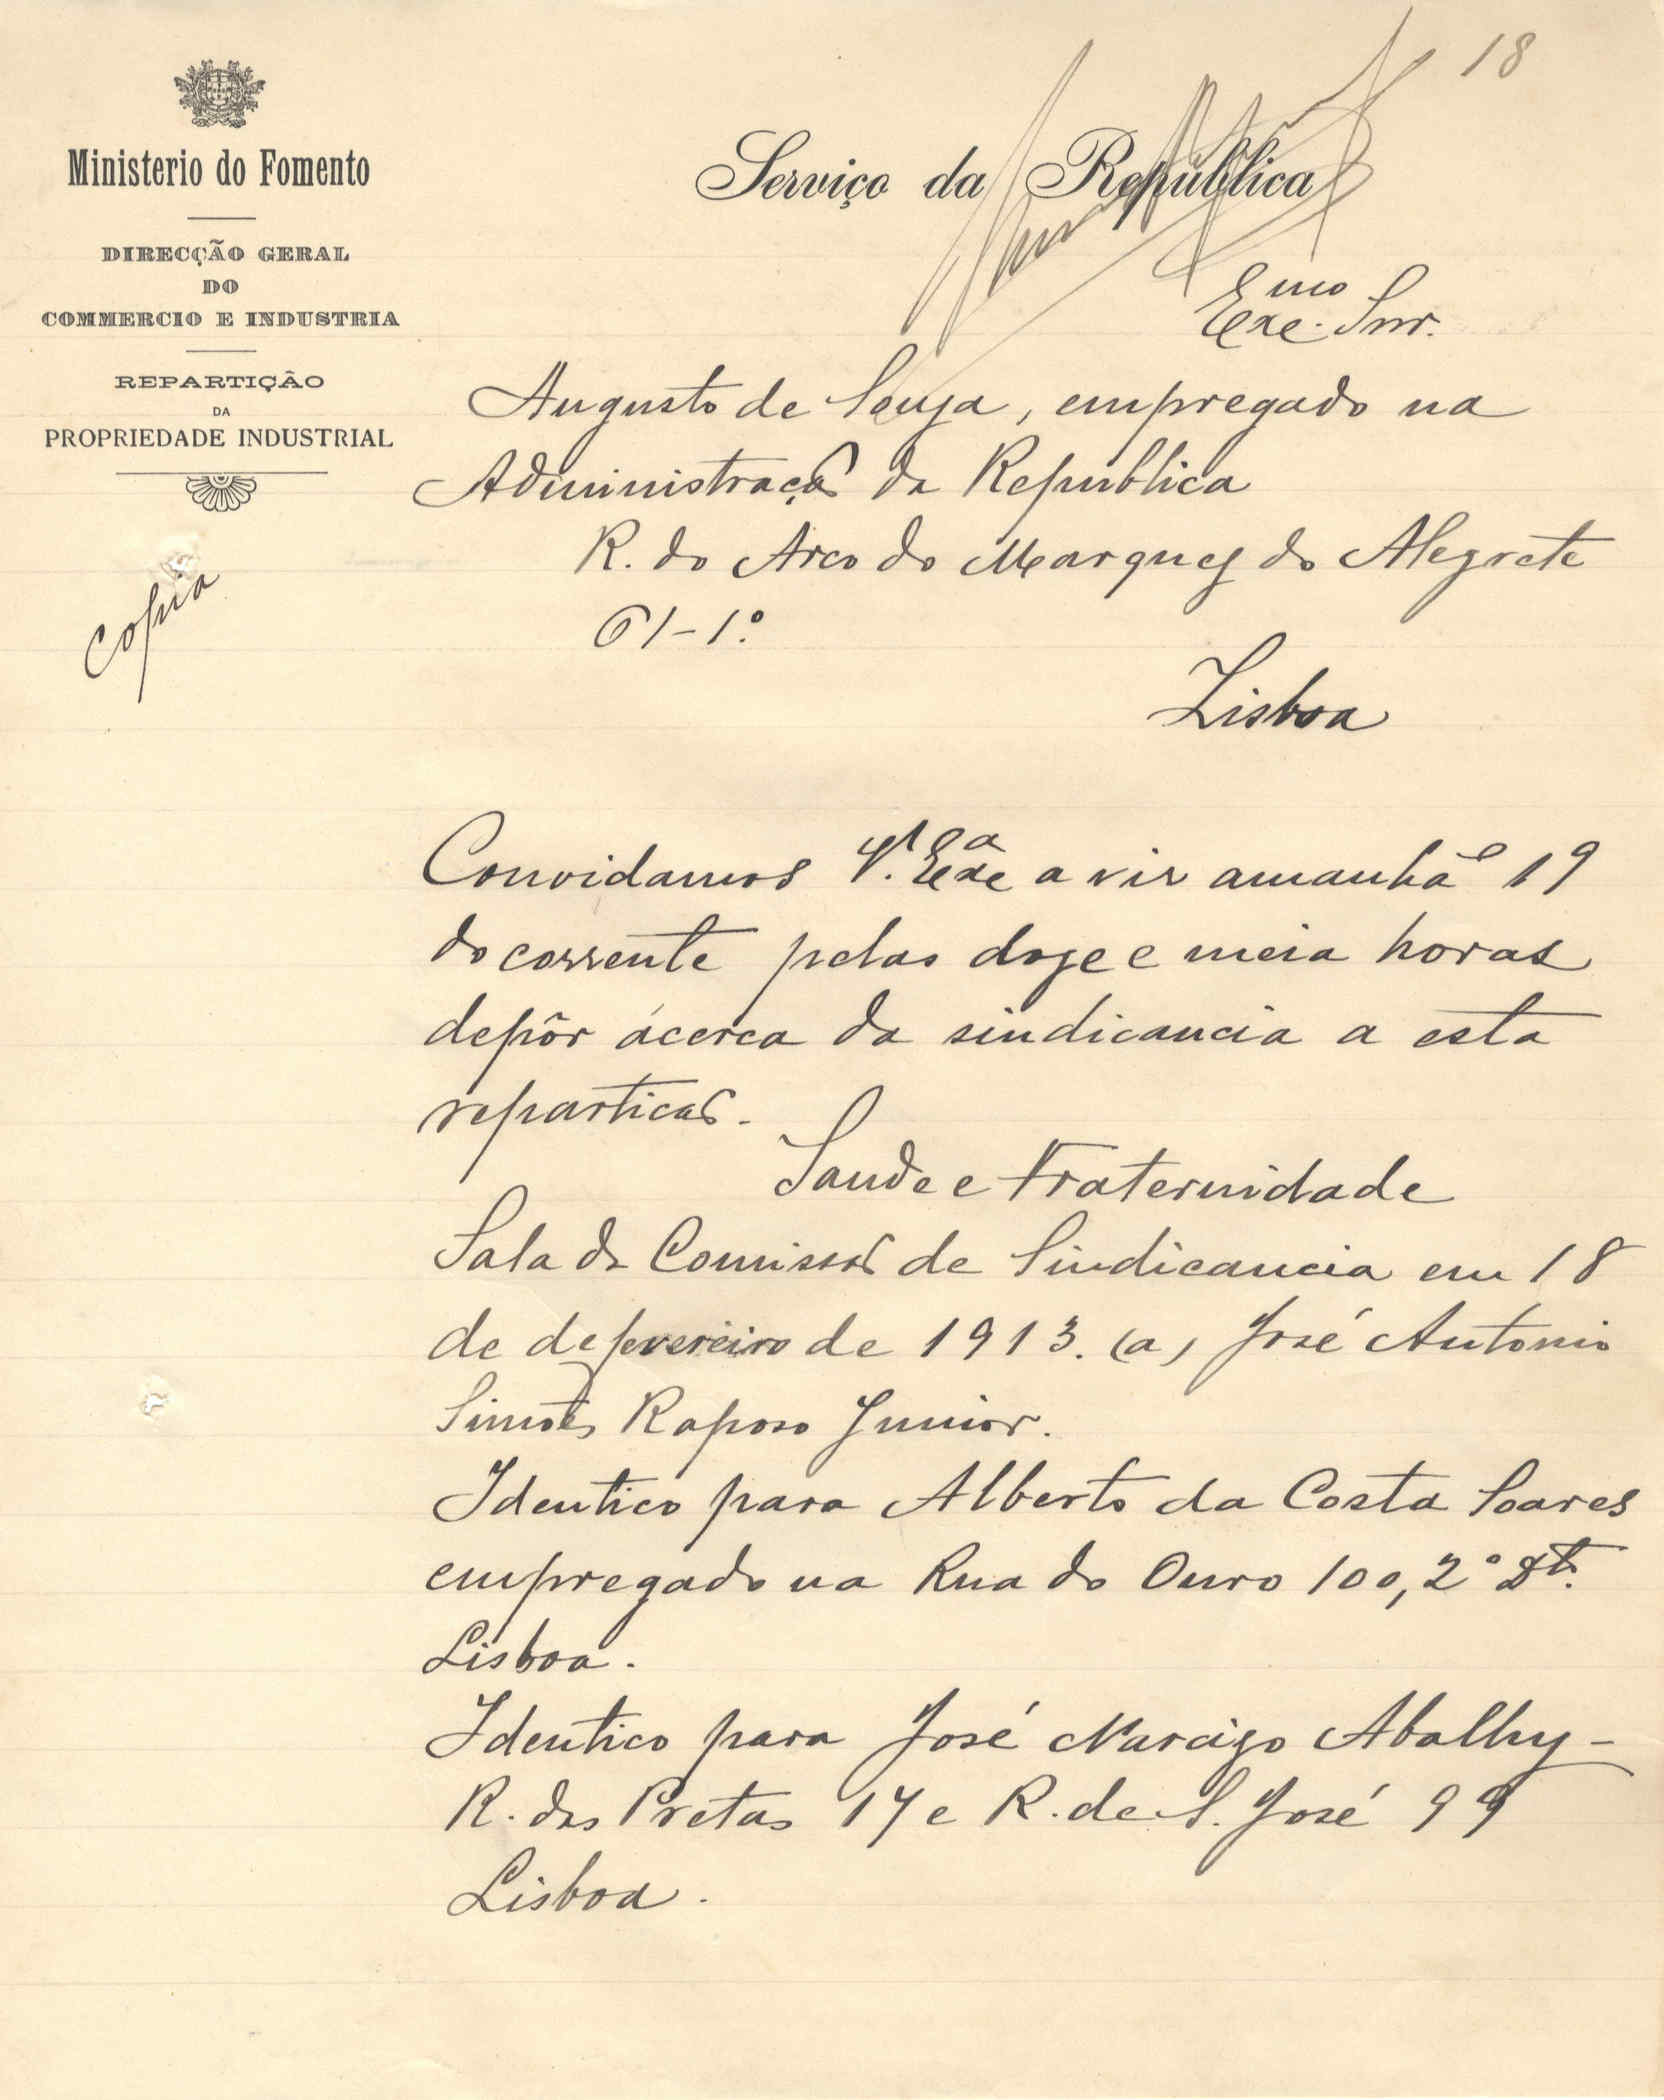 18
Ministerio do Fomento
DIRECÇÃO GERAL
DO
COMMERCIO E INDUSTRIA
REPARTIÇÃO
DA
PROPRIEDADE INDUSTRIAL
Copia
Serviço da Republica
Exc.mo Snr.
Augusto de Souza, empregado na
Administração da Republica
R. do Arco do Marquez do Alegrete
61-1.º
Lisboa
Convidamos V. Exc.a a vir amanhã 19
do corrente pelas doze e meia horas
depôr ácerca da sindicancia a esta
repartição.
Saude e Fraternidade
Sala da Comissão de Sindicancia em 18
de de fevereiro de 1913. (a) José Antonio
Simões Raposo Junior.
Identico para Alberto da Costa Soares
empregado na Rua do Ouro 100, 2º Dt.º
Lisboa.
Identico para José Narcizo Abalhy-
R. das Pretas 17 e R. de S. José 99
Lisboa.